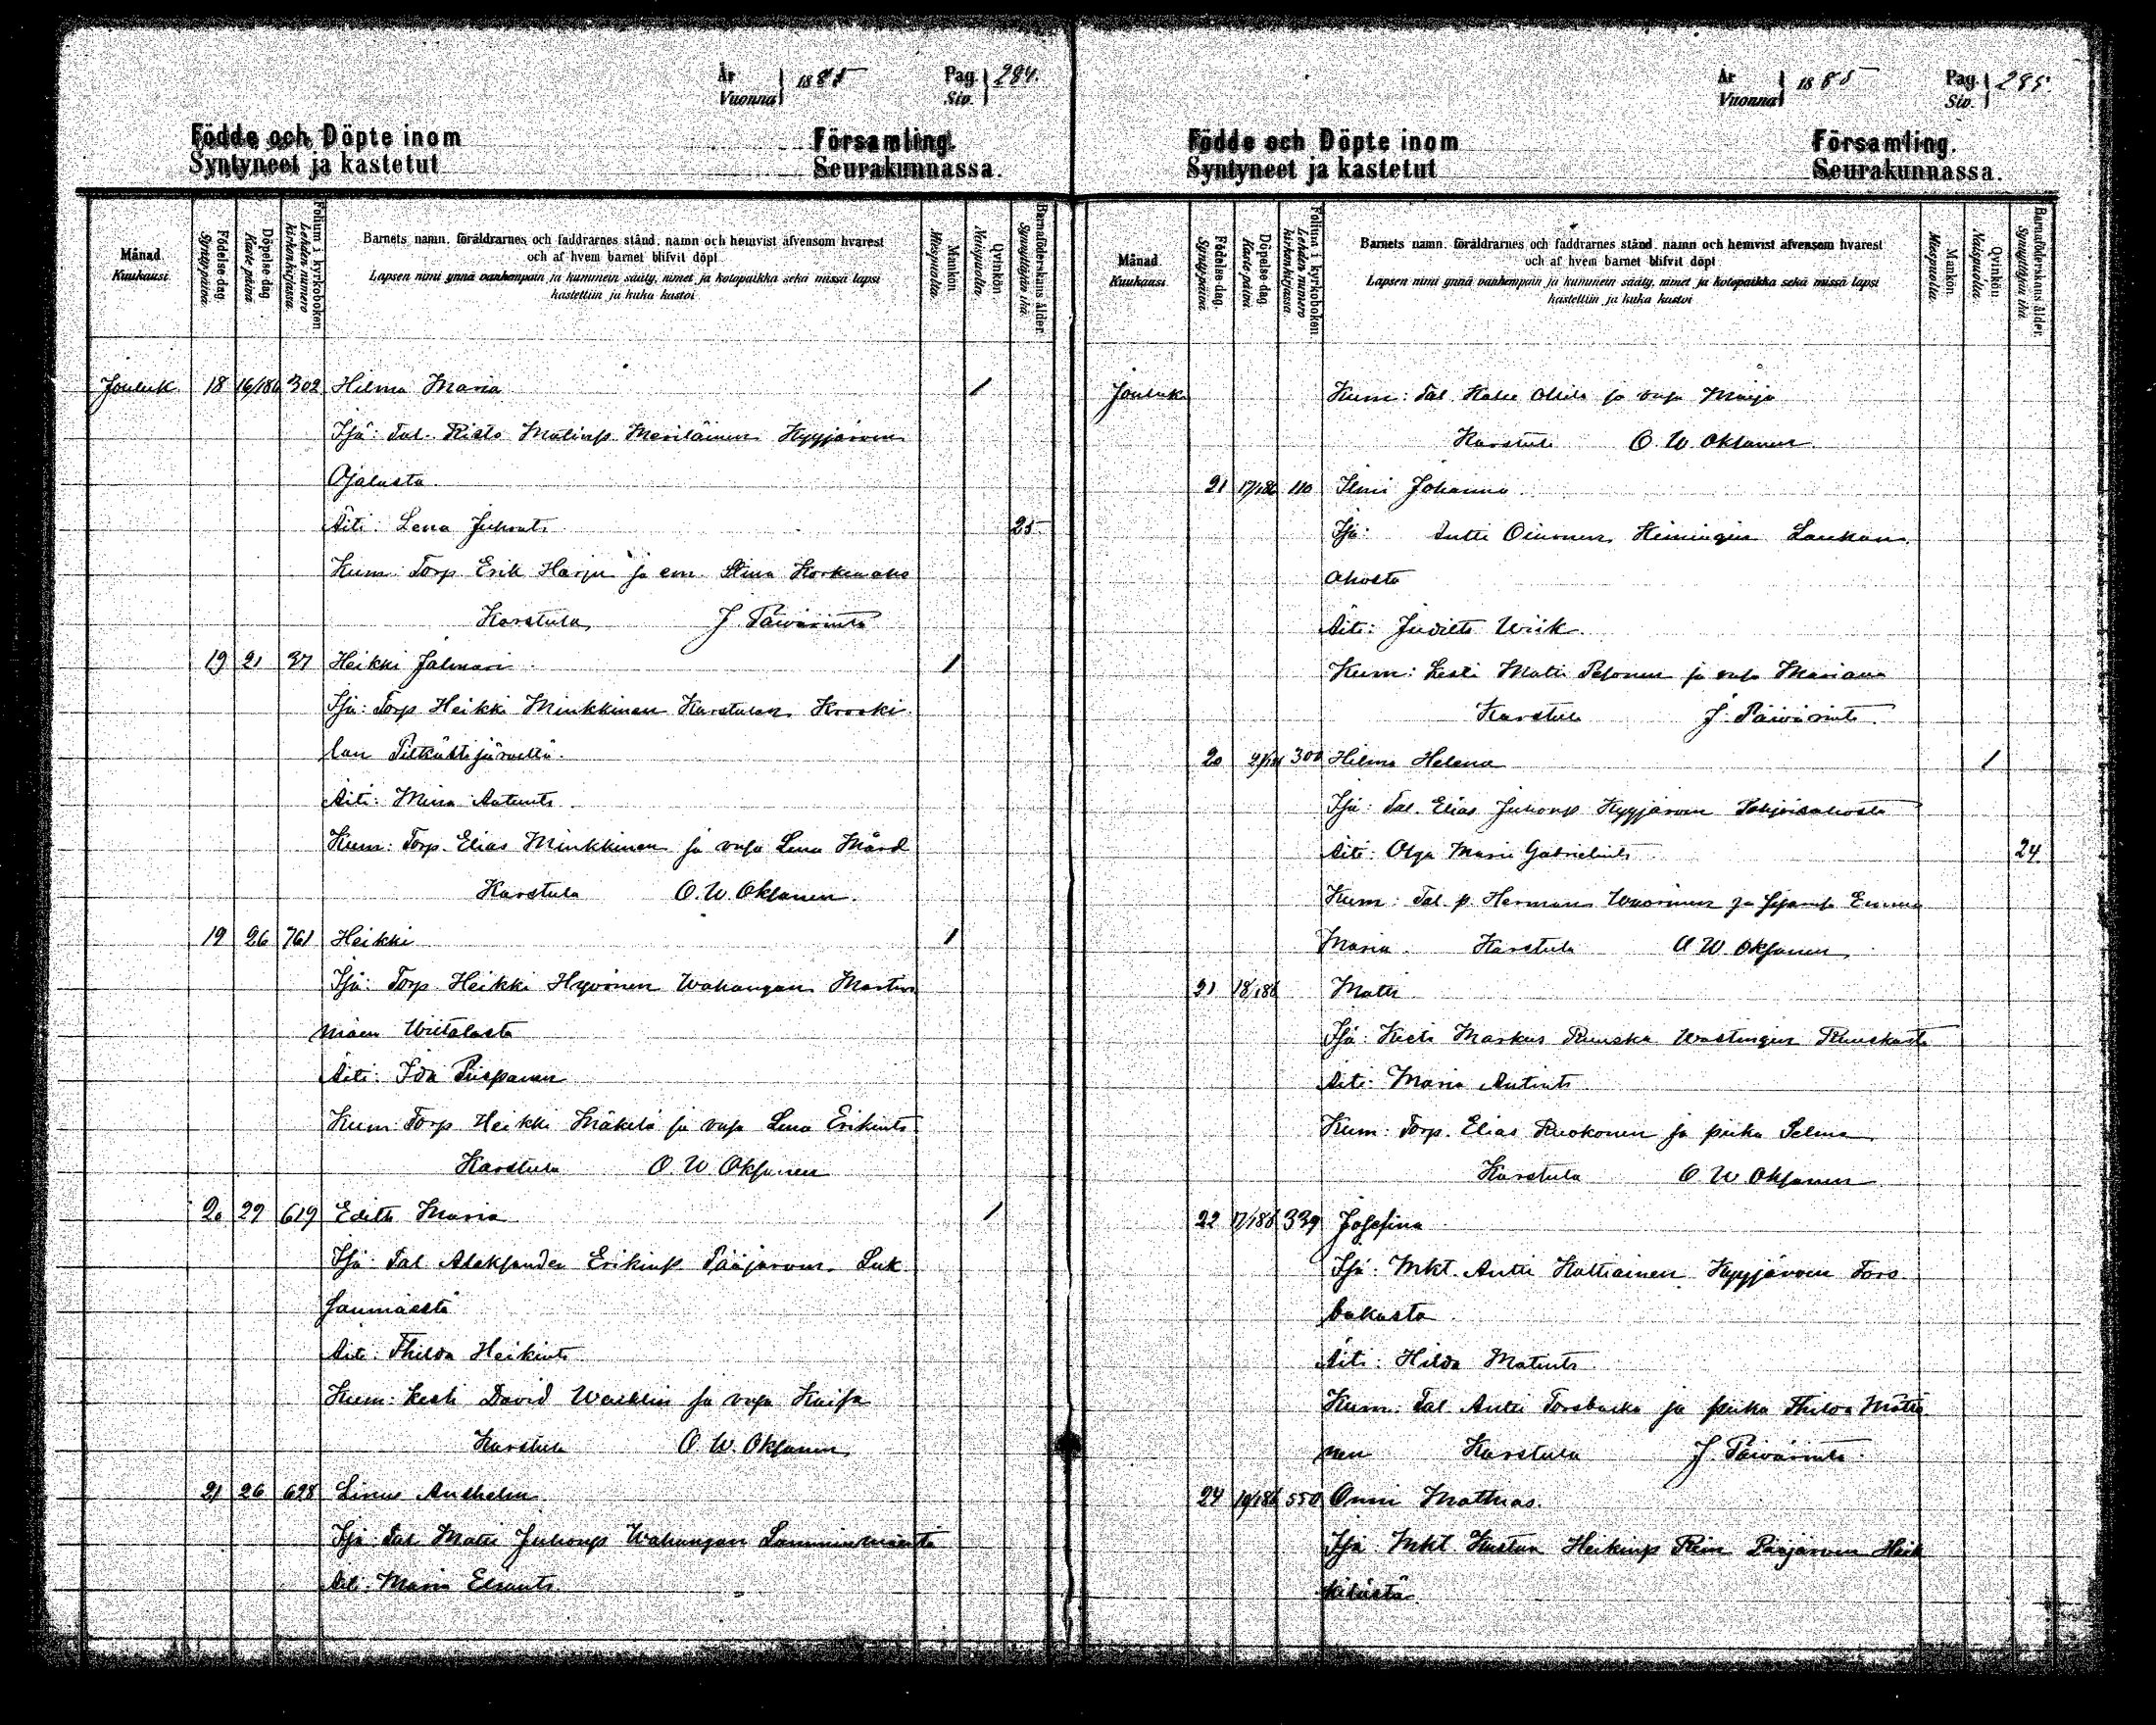 År
Vuonna 1885
Pag.
Siv. 284.
Födde och Döpte inom Församling.
Syntyneet ja kastetut Seurakunnassa.
Månad Kuukausi
Födelse-dag. Syntypäivä.
Döpelse-dag Kaste päivä
Folium i kyrkoboken Lehden numero kirkonkirjassa
Barnets namn, föräldrarnes och faddrarnes stånd, namn och hemvist äfvensom hvarest
och af hvem barnet blifvit döpt
Lapsen nimi ynnä vanhempain ja kummein sääty, nimet ja kotopaikka sekä missä lapsi
kastettiin ja kuka kastoi
Mankön Miespuolia.
Qvinkön Naispuolia
Barnaföderskans ålder. Synnyttäjän ikä
Jouluk. 18 16/1 86 302 Hilma Maria 1
Isä: Tal. Risto Matinp. Meriläinen Kyyjärven
Ojalasta.
Äiti: Lena Juhont. 25
Kum: Torp Erik Harju ja em. Stina Korkeaaho
Karstula, J. Päivärinta
19 21 37 Heikki Jalmari 1
Isä: Torp Heikki Minkkinen Karstulan Kroski
lan Pitkästijärveltä.
Äiti: Mina Antint.
Kum: Torp. Elias Minkkinen ja vaja Lena Mård
Karstula O. W. Oksanen.
19 26 761 Heikki 1
Isä: Torp. Heikki Hyvönen Wahangan Martin
mäen Wiitalasta
Äiti: Ida Piispanen
Kum: Torp Heikki Mäkelä ja vaja Lena Erikint.
Karstula O. W. Oksanen
20 29 619 Edith Maria 1
Isä: Tal Aleksander Erikinp. Pääjärven Suk
saumäestä
Äiti: Thilda Heikint.
Kum: kesti David ja vaja Kaisa
Karstula O. W. Oksanen.
21 26 628 Linus Anshelm
Isä: Tal Matti Juhonp Wahangan Lamminmäestä
Äiti: Maria
År
Vuonna 1885
Pag.
Siv. 285.
Födde och Döpte inom Församling.
Syntyneet ja kastetut Seurakunnassa.
Månad Kuukausi
Födelse-dag. Syntypäivä
Döpelse-dag Kaste päivä
Folium i kyrkoboken Lehden numero kirkonkirjassa
Barnets namn, föräldrarnes och faddrarnes stånd, namn och hemvist äfvensom hvarest
och af hvem barnet blifvit döpt
Lapsen nimi ynnä vanhempain ja kummein sääty, nimet ja kotopaikka sekä missä lapsi
kastettiin ja kuka kastoi
Mankön Miespuolia.
Qvinkön Naispuolia.
Barnaföderskans ålder. Synnyttäjän ikä
Jouluk Kum: Tal. Kalle ja vaja Maija
Karstula O. W. Oksanen
21 17/1 86 110 Ilmi Johanna.
Isä: Antti Oinonen Kiminginn Laukan
ahosta
Äiti: Juditte Wiik.
Kum: Lesti Matti Pesonen ja vaja Mariana
Karstula J. Päivärinta.
20 300 Hilma Helena 1
Isä: Tal. Elias Juhonp Kyyjärven Pohjoisahosta
Äiti: Olga Maria Gabrielint. 24
Kum: Tal. p. Herman Wuorinen ja Emma
Maria. Karstula O W. Oksanen.
21 18/1 86 Matti
Isä: Kesti Markus Ruuska Wastingin Ruuskasta
Äiti: Maria Antint.
Kum: Torp. Elias Ruokonen ja piika Selma
Karstula O W Oksanen
22 17/1 86 339 Josefina
Isä: Mkt. Antti Kattiainen Kyyjärven Tors
bakasta
Äiti: Hilda Matint.
Kum: Tal. Antti Torsbacka ja piika Thilda Mätti
nen Karstula J. Päivärinta
24 19/1 86 550 Onni Mathias.
Isä: Mkt Kustaa Heikinp Pääjärven Heik
kilästä